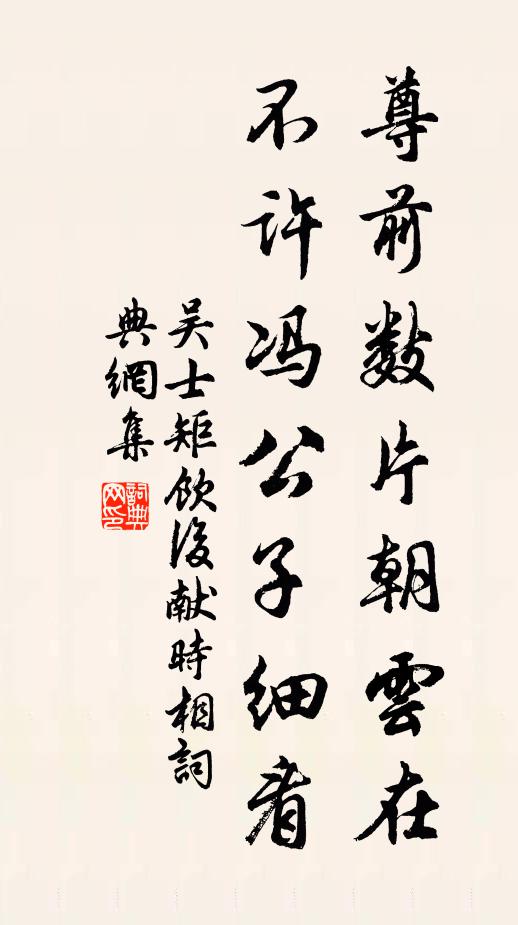 尊前数片朝雲在
不许冯公子细看
吴士矩饮後献時相詞
典網集
詞典
网印